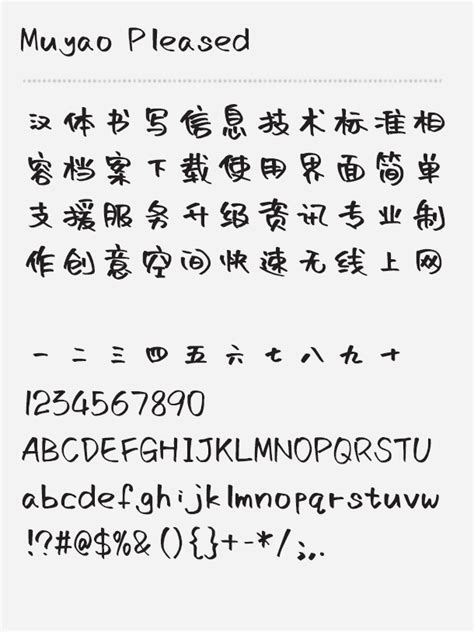 Muyao Pleased
汉体书写信息技术标准相
容档案下载使用界面简单
支援服务升级资讯专业制
作创意空间快速无线上网
一二三四五六七八九十
1234567890
ABCDEFGHIJKLMNOPQRSTU
abcdefghijklmnopqrstuvw
!?#@$%&(){}+-*/;,.